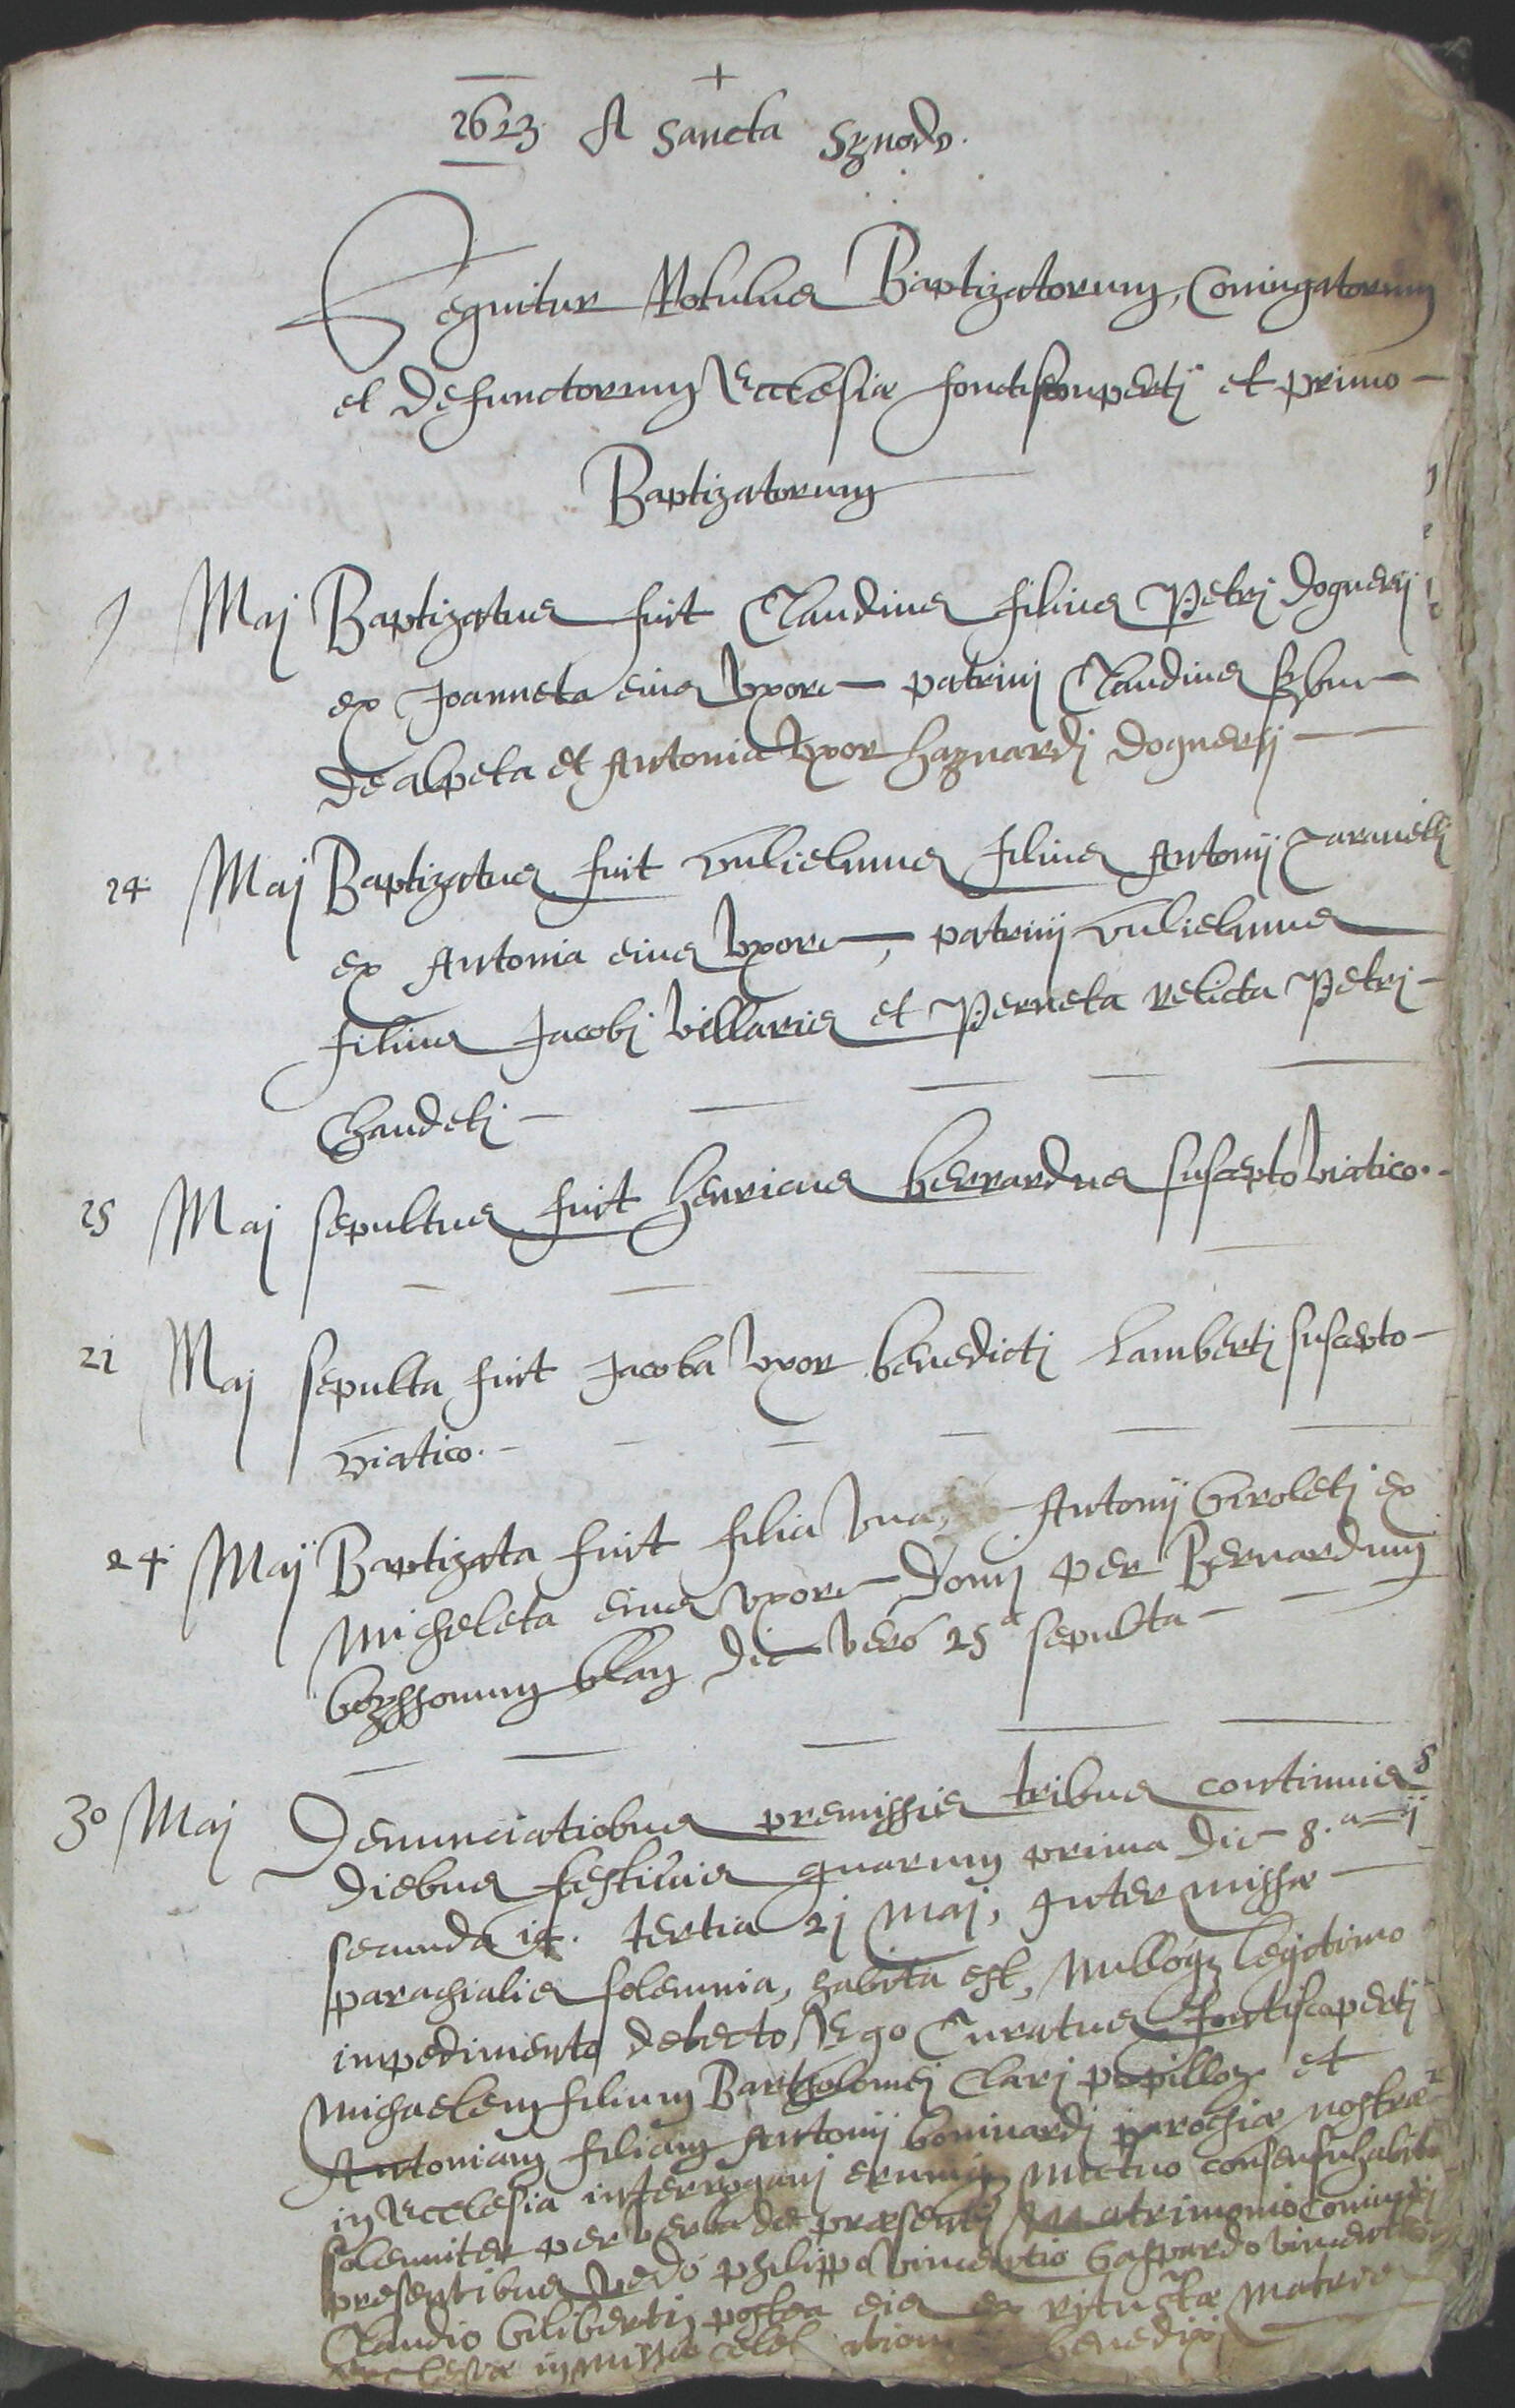 +
1623 A Sancta Synodo.
Sequitur Rotulus Baptizatorum, Coniugatorum
et Defunctorum Ecclesiæ fontiscouperti et primo
Baptizatorum
7 Maj Baptizatus fuit Claudius filius Petri Doguerij
ex Joanneta eius Uxore patrini Claudius
de alpeta et Antonia Uxor haynardi Doguerij
14 Maj Baptizatus fuit Gulielmus filius Antonij
ex Antonia eius Uxore, patrinij Gulielmus
filius Jacobi Villaris et Perneta relicta Petri
Chaudeti
15 Maj sepultus fuit henricus berrardus suscepto viatico.
21 Maj sepulta fuit Jacoba Uxor benedicti Lamberti suscepto
viatico.
24 Maij Baptizata fuit filia Una Antonij Giroleti ex
Micheleta eius Uxore Domi per Bernardum
die Vero 25a sepulta
30 Maj Denunciatiobus premissis tribus continuis
diebus festiuis quarum prima die 8.a
secunda 14. tertia 21 Maj, Inter missæ
parachialis solemnia, habita est, Nulloq; legitimo
impedimento detecto, Ego Curatus fontiscoperti
Michaelem filium Bartholomei Clari et
Antoniam filiam Antonij bominardi parochiæ nostræ
in Ecclesia interrogaui erumq; mutuo consensu habito
solemniter per verba de præsenti Matrimonio coniunxi
presentibus Vero philippo Vincentio Gaspardo Vincentio
Claudio Giliberti postea eis ex ritu sctæ Matris
Ecclesiæ in missæ benedixi